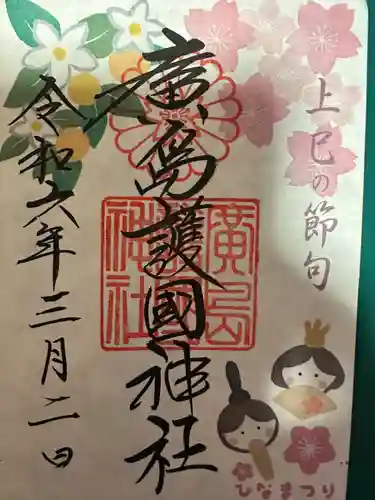 ひなまつり
上巳の節句
廣島護國神社
廣島護國神社
令和六年三月二日
ひなまつり